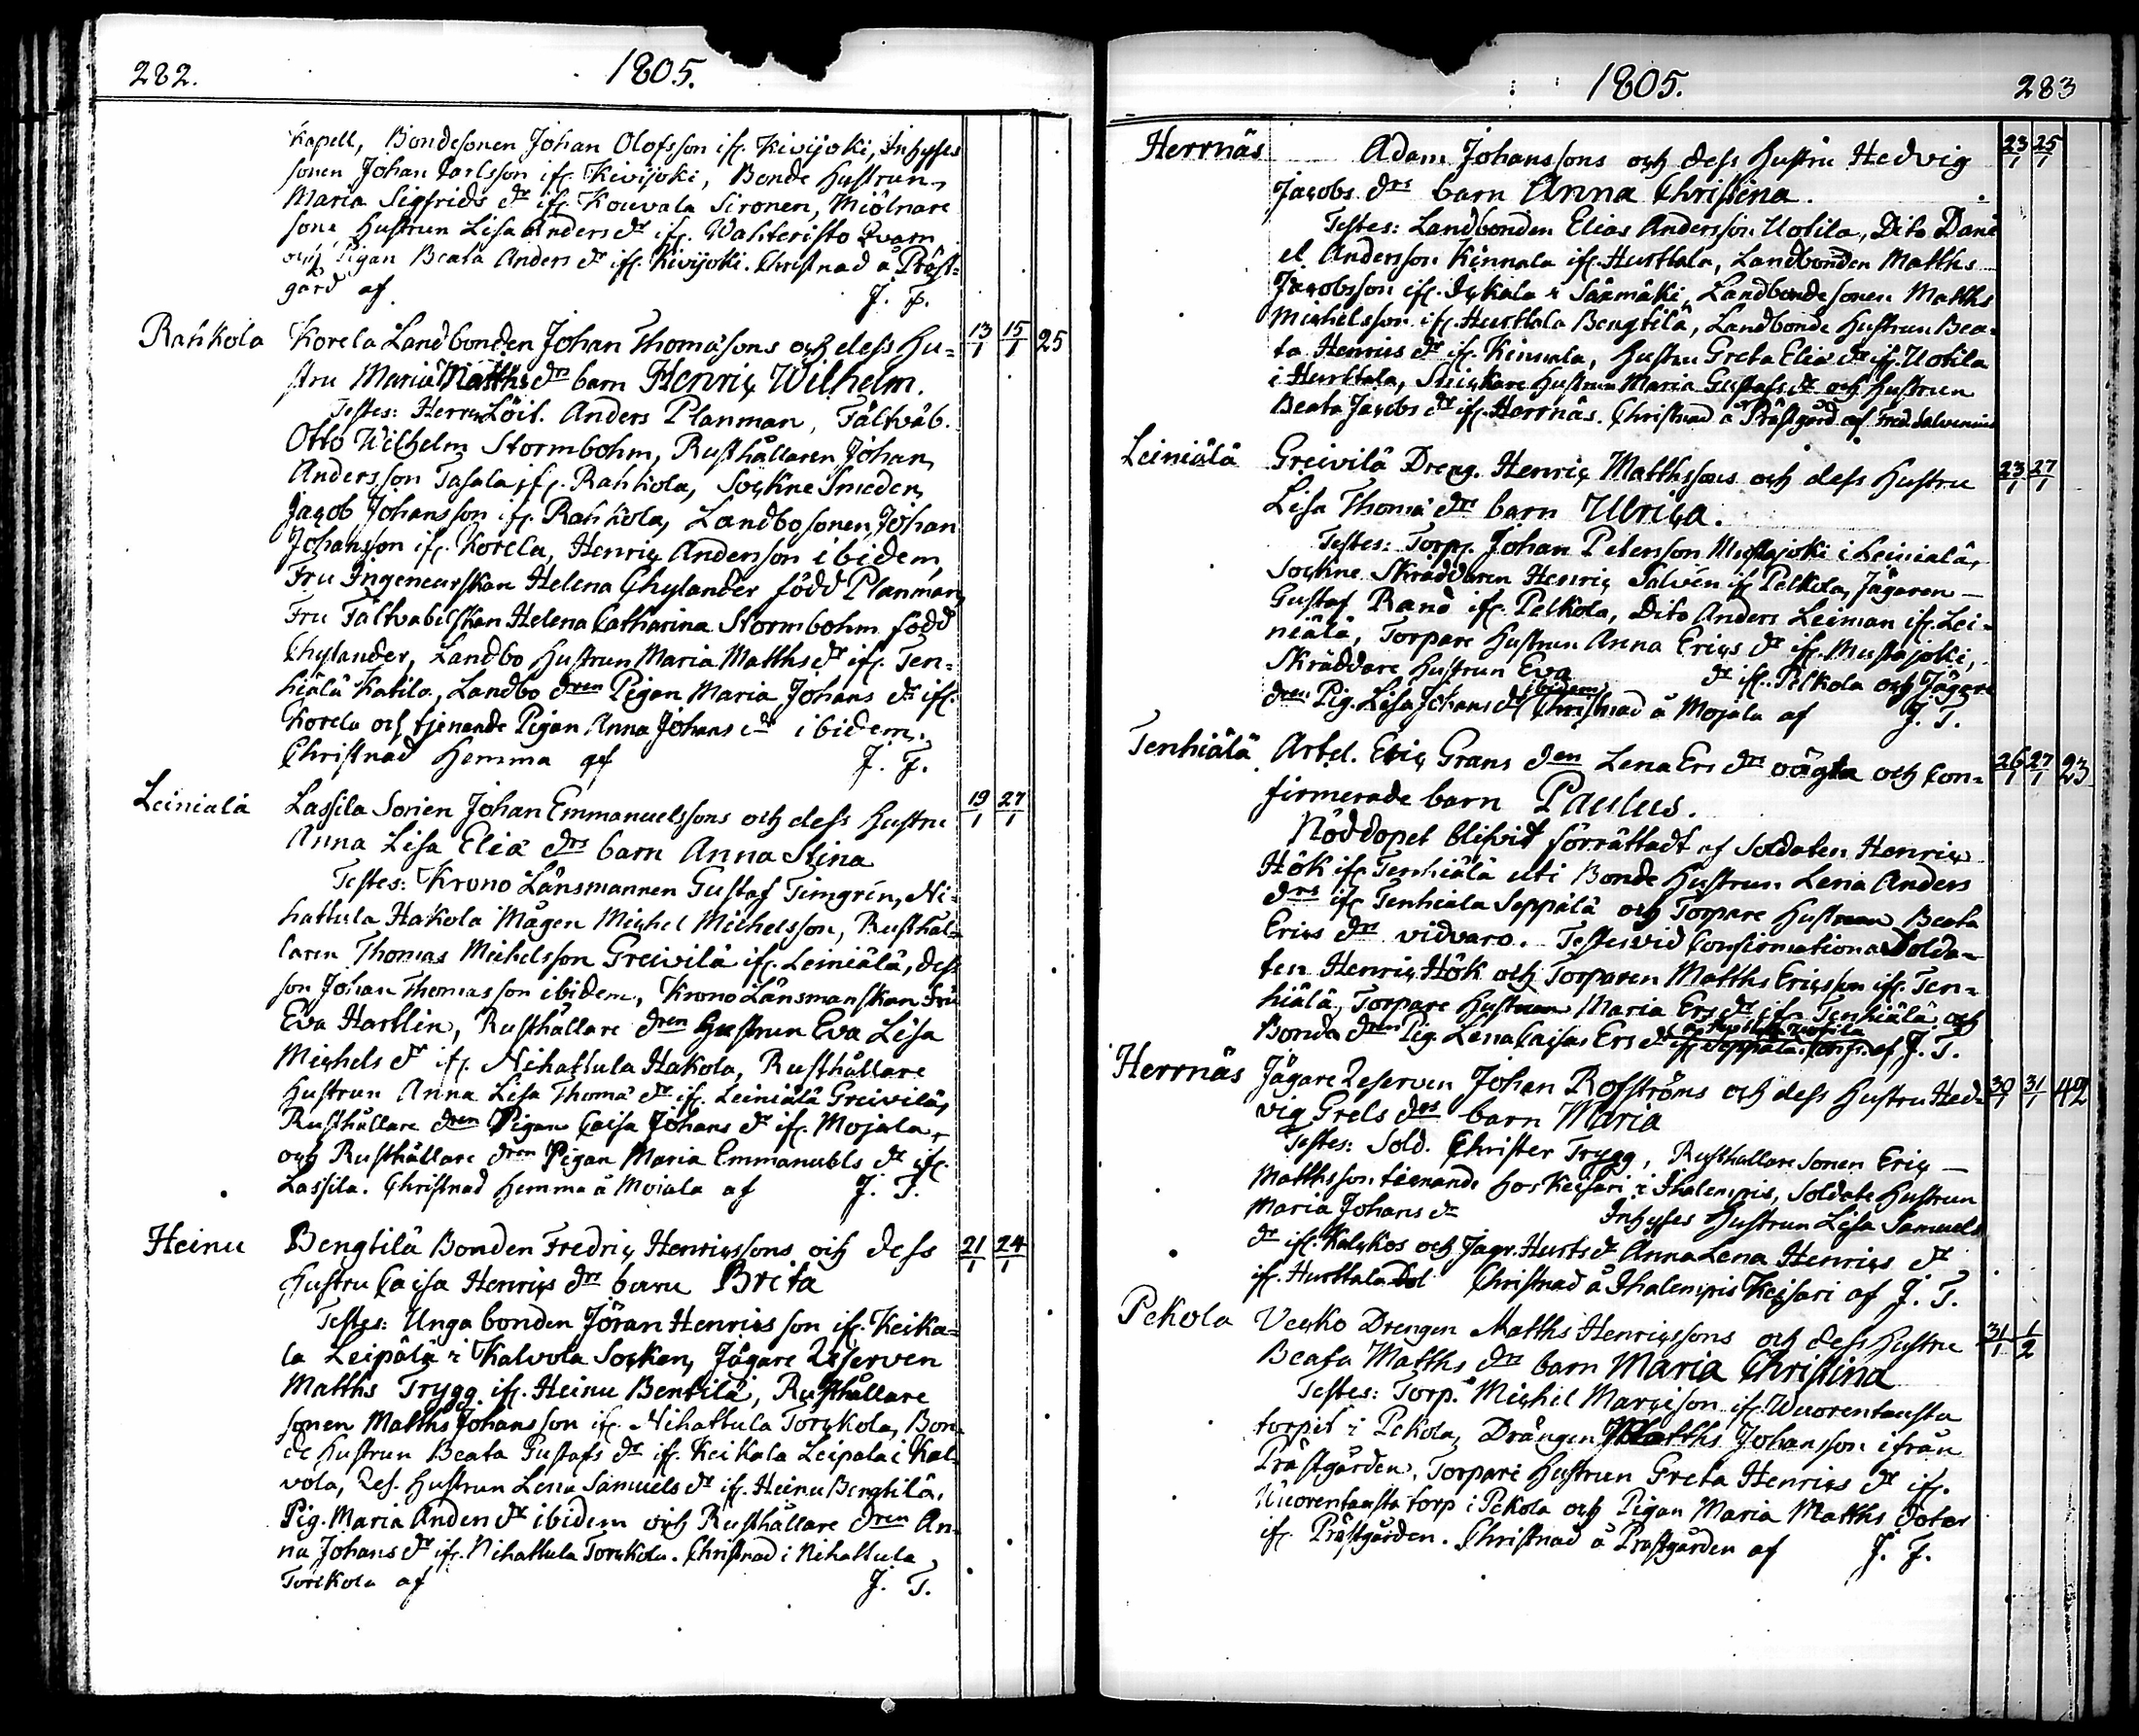 282. 1805.
Kapell, Bondesonen Johan Olofsson ifr. Kivijoki, Inhyses
sonen Johan Carlsson ifr. Kivijoki, Bonde Hustrun
Maria Sigfrids dr ifr. Kouvala Sironen, Miölnare
sons Hustrun Lisa Anders dr ifr. Wahteristo Qvarn
och Pigan Beata Anders dr ifr. Kivijoki. Christnad å Präst-
gård af J. F.
Rahkola Korela Landbonden Johan Thomæsons och dess Hu- 13/1 15/1 25
stru Maria Matths drs barn Henric Wilhelm.
Testes: Herr Löit. Anders Planman, Fältväb.
Otto Wilhelm Stormbohm, Rusthållaren Johan
Andersson Tasala ifr. Rahkola, Sockne Smeden
Jacob Johansson ifr. Rahkola, Landbosonen Johan
Johansson ifr. Korela, Henric Anderson ibidem,
Fru Ingeneurskan Helena Chylander född Planman
Fru Fältvabelskan Helena Catharina Stormbohm född
Chylander, Landbo Hustrun Maria Matths dr ifr. Ten-
hiälä Katila, Landbo dren Pigan Maria Johans dr ifr.
Korela och tjenande Pigan Anna Johans dr ibidem.
Christnad Hemma af J. F.
Leiniälä Lassila Sonen Johan Emmanuelssons och dess Hustru 19/1 27/1
Anna Lisa Eliæ drs barn Anna Stina
Testes: Krono Länsmannen Gustaf Timgrén, Ni-
hattula Hakola Mågen Michel Michelsson, Rusthål-
laren Thomas Michelsson Greivilä ifr. Leiniälä, dess
son Johan Thomasson ibidem, Krono Länsmanskan Fru
Eva Hartlin, Rusthållare dren Hustrun Eva Lisa
Michels dr ifr. Nihattula Hakola, Rusthållare
Hustrun Anna Lisa Thomæ dr ifr. Leiniälä Greivilä,
Rusthållare dren Pigan Caisa Johans dr ifr. Mojala,
och Rusthållare dren Pigan Maria Emmanuels dr ifr.
Lassila. Christnad hemma å Moiala af J. T.
Heinu Bengtilä Bonden Fredric Henricssons och dess 21/1 24/1
Hustru Caisa Henrics drs barn Brita
Testes: Unga bonden Jöran Henricsson ifr. Keika-
la Leipälä i Kalvola Socken, Jägare Reserven
Matths Trygg ifr. Heinu Bentilä, Rusthållare
sonen Matths Johansson ifr. Nihattula Torckola, Bon-
de Hustrun Beata Gustafs dr ifr. Keikala Leipala i Kal-
vola, Res. Hustrun Lena Samuels dr ifr. Heinu Bengtilä,
Pig. Maria Anders dr ibidem och Rusthållare dren An-
na Johans dr ifr. Nihattula Torckola. Christnad i Nihattula
Torckola af J. T.
1805. 283
Herrnäs Adam Johanssons och dess Hustru Hedvig 23/1 25/1
Jacobs drs barn Anna Christina.
Testes: Landbonden Elias Andersson Uotila, Dito Dani-
el Andersson Kinnala ifr. Hurttala, Landbonden Matths
Jacobsson ifr. i Säxmäki, Landbondesonen Matths
Michelsson ifr. Hurttala Bengtilä, Landbonde Hustrun Bea-
ta Henrics dr ifr. Kinnala, Hustru Greta Eliæ dr ifr. Uotila
i Hurttala, Snickare Hustrun Maria Gustafs dr och Hustrun
Beata Jacobs dr ifr. Herrnäs. Christnad å Prästgård af Fred. Salvenius
Leiniälä Greivilä Dreng. Henric Matthssons och dess Hustru 23/1 27/1
Lisa Thomæ drs barn Ulrica.
Testes: Torp. Johan Petersson Mustajoki i Leinialä,
Sockne Skräddaren Henric Salvén ifr Pelkola, Jägaren
Gustaf Rand ifr. Pelkola, Dito Anders Leiman ifr. Lei-
niälä, Torpare Hustrun Anna Erics dr ifr. Mustajoki,
Skräddare Hustrun Eva dr ifr. Pelkola och Jägare
dren Pig. Lisa Johans dr ibidem Christnad å Mojala af J. T.
Tenhiälä Artel. Eric Grans den Lena Ers drs oägta och Con- 26/1 27/1 23
firmerade barn Paulus.
Nöddopet blifvit förrättadt af Soldaten Henric
Hök ifr Tenhiälä uti Bonde Hustrun Lena Anders
drs ifr Tenhiala Seppälä och Torpare Hustrun Beata
Erics drs vidvaro. Testes vid Confirmationa Solda-
ten Henric Hök och Torparen Matths Ericsson ifr. Ten-
hiälä, Torpare Hustrun Maria Ers dr ifr Tenhiälä och
Bonde dren Pig. Lena Caisa Ers dr ifr Seppälä. Confr. af J. T.
Herrnäs Jägare Reserven Johan Rosströms och dess Hustru Hed- 30/1 31/1 42
vig Grels drs barn Maria
Testes: Sold. Christer Trygg, Rusthållare Sonen Eric
Matthsson tienande hos Keisari i Ihalempis, Soldate Hustrun
Maria Johans dr Inhyses Hustrun Lisa Samuels
dr ifr. Kalckos och Jagr. Hurts dr Anna Lena Henrics dr
ifr. Hurttala Christnad å Ihalempis Keisari af J. T.
Pekola Vecko Drengen Matths Henricssons och dess Hustru 31/1 1/2
Beata Matths drs barn Maria Christina
Testes: Torp. Michel Marcison ifr. Wuorentausta
torpet i Pekola, Drängen Matths Johansson ifrån
Prästgården, Torpare Hustrun Greta Henrics dr ifr.
Wuorentausta torp i Pekola och Pigan Maria Matths doter
ifr Prästgården. Christnad å Prästgården af J. F.